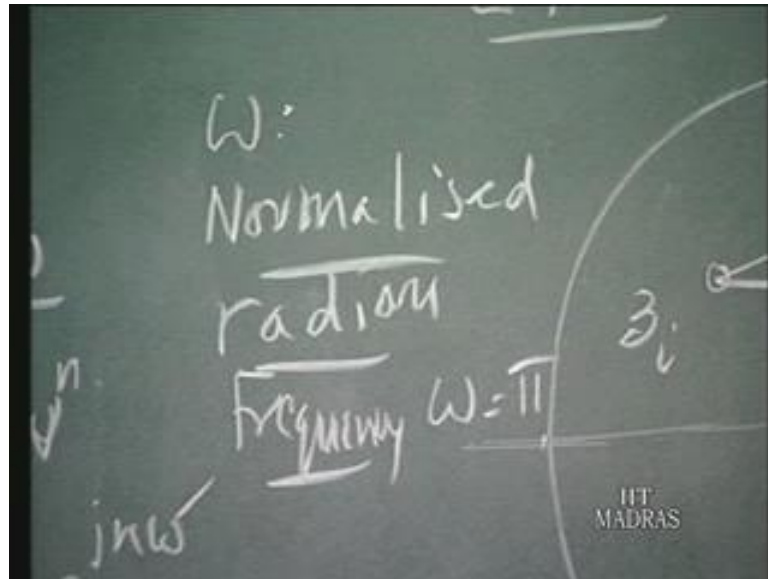 ω:
Normalised
radian
Frequency ω = π
z_i
n
jnω
IIT
MADRAS